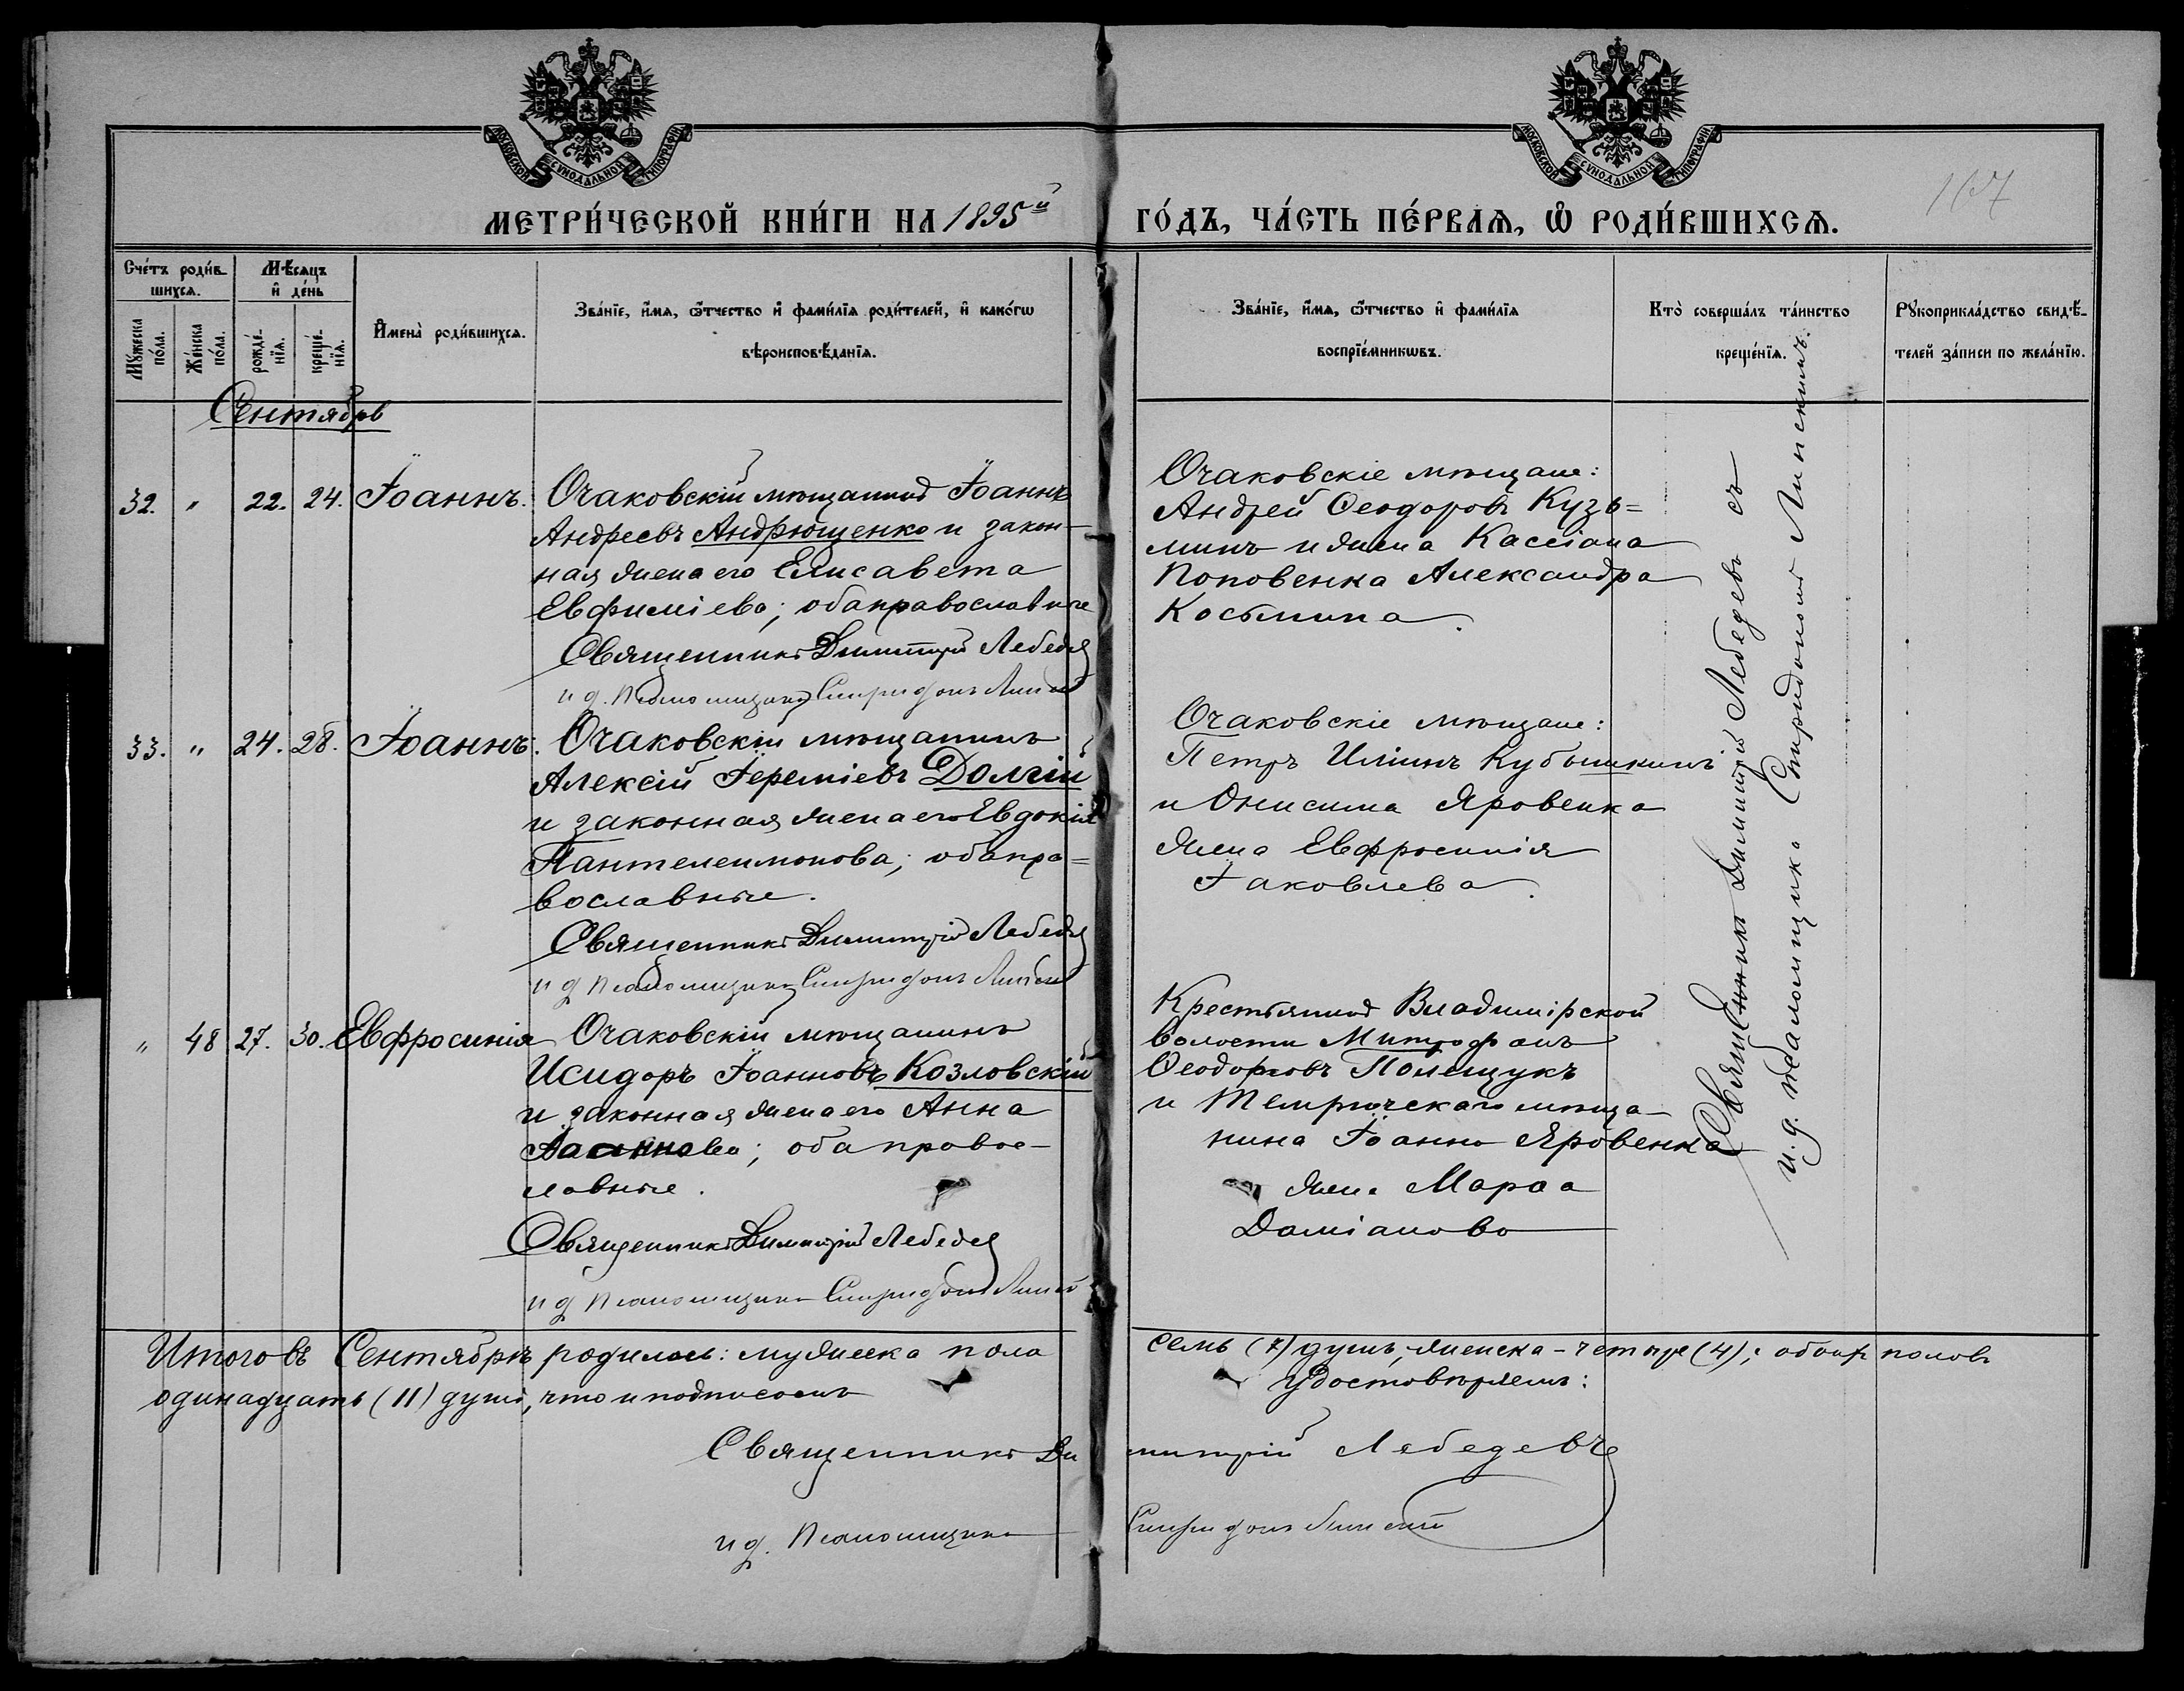 МОСКОВСКОЙ СѴНОДАЛЬНОЙ ТИПОГРАФІИ
МОСКОВСКОЙ СѴНОДАЛЬНОЙ ТИПОГРАФІИ
МЕТРИ́ЧЕСКОЙ КНИ́ГИ НА 1895й
ГО́ДЪ, ЧА́СТЬ ПЕ́РВАѦ, Ѡ҆ РОДИ́ВШИХСѦ.
167
Сче́тъ роди́в-
шихсѧ.
Мꙋ́жеска
по́ла.
Же́нска
по́ла.
Мѣ́сѧцъ
и҆ де́нь
рожде́-
нїѧ.
креще́-
нїѧ.
И҆мена̀ роди́вшихсѧ.
Зва́нїе, и҆́мѧ, ѻ҆́тчество и҆ фами́лїѧ роди́телей, и҆ како́гѡ
вѣроисповѣ́данїѧ.
Зва́нїе, и҆́мѧ, ѻ҆́тчество и҆ фами́лїѧ
воспрїе́мникѡвъ.
Кто̀ соверша́лъ та́инство
креще́нїѧ.
Рꙋкоприкла́дство свидѣ́-
телей за́писи по жела́нїю.
Сентябрь
32. " 22. 24. Іоаннъ.
Очаковскій мѣщанинъ Іоаннъ
Андреевъ Андрющенко и закон-
ная жена его Елисавета
Евфиміева; оба православные
Священникъ Димитрій Лебедевъ
и д. Псаломщика Спиридонъ Липскій
Очаковскіе мѣщане:
Андрей Ѳеодоровъ Кузь=
минъ и жена Кассіана
Поповенка Александра
Косьмина.
33. " 24. 28. Іоаннъ.
Очаковскій мѣщанинъ
Алексій Іереміевъ Долгій
и законная жена его Евдокія
Пантелеимонова; оба пра=
вославные.
Священникъ Димитрій Лебедевъ
и д Псаломщика Спиридонъ Липскій
Очаковскіе мѣщане:
Петръ Иліинъ Кубышкинъ
и Онисима Яровенка
жена Евфросинія
Іаковлева.
" 48 27. 30. Евфросинія
Очаковскій мѣщанинъ
Исидоръ Іоанновъ Козловскій
и законная жена его Анна
оба правос-
лавные.
Священникъ Димитрій Лебедевъ
и д Псаломщика Спиридонъ Липскій
Крестьянинъ Владимірской
волости Митрофанъ
Ѳеодоровъ Полещукъ
и Темрюческаго мѣща-
нина Іоанна Яровенка
жена Марѳа
Даміанова
Священникъ Димитрій Лебедевъ съ
и. д. псаломщика Спиридономъ Липскимъ.
Итого въ Сентябрѣ родилось: мужеска пола семь (7) душъ, женска - четыре (4); обоихъ половъ
одинадцать (11) душъ, что и подписомъ удостовѣряемъ:
Священникъ Димитрій Лебедевъ
и д. Псаломщика Спиридонъ Липскій